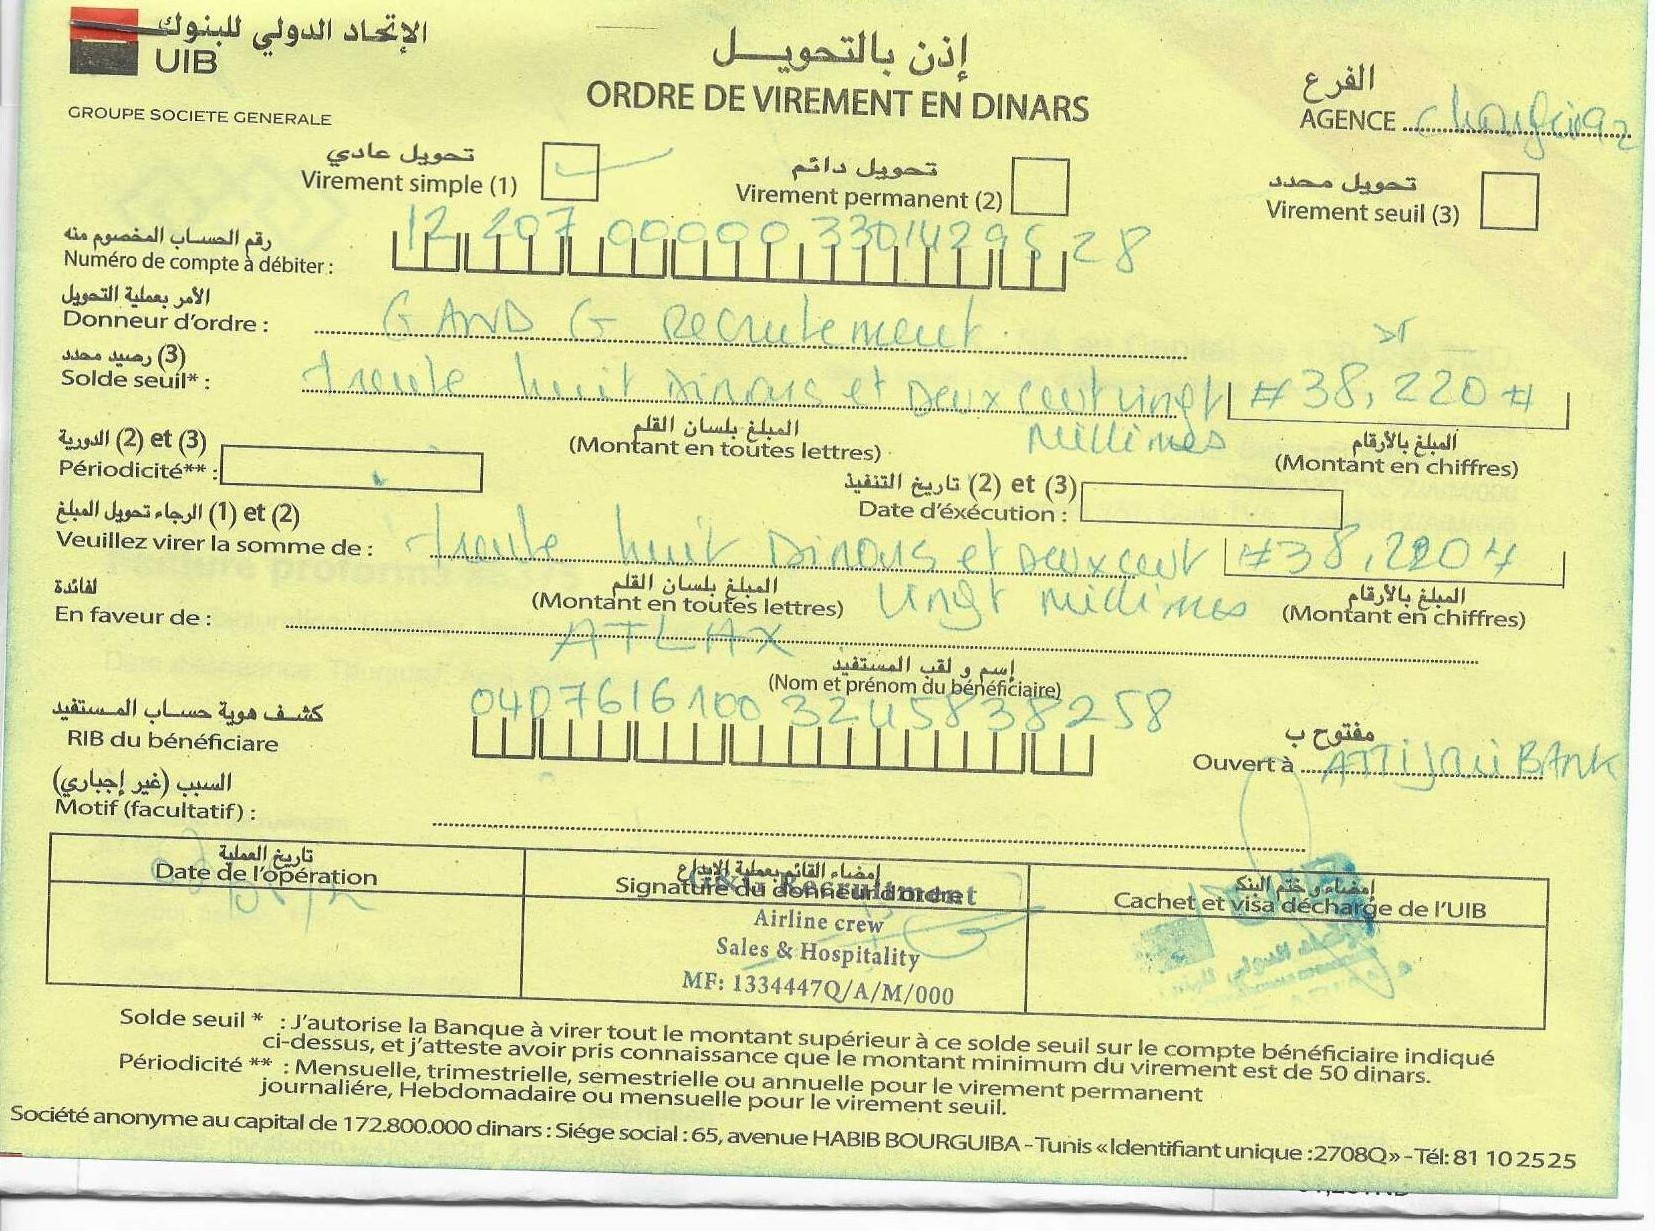 الإتحاد الدولي للبنوك
UIB
GROUPE SOCIETE GENERALE
إذن بالتحويل
ORDRE DE VIREMENT EN DINARS
الفرع
AGENCE
تحويل عادي
Virement simple (1)
تحويل دائم
Virement permanent (2)
تحويل محدد
Virement seuil (3)
رقم الحساب المخصوم منه
Numéro de compte à débiter : 12 207 00000 330142956 28
الأمر بعملية التحويل
Donneur d'ordre : G AND G Recrutement
(3) رصيد محدد
Solde seuil* : trente huit Dinars et Deux cent vingt millimes # 38, 220 # DT
المبلغ بلسان القلم
(Montant en toutes lettres)
المبلغ بالأرقام
(Montant en chiffres)
الدورية (2) et (3)
Périodicité** :
تاريخ التنفيذ (2) et (3)
Date d'éxécution :
الرجاء تحويل المبلغ (1) et (2)
Veuillez virer la somme de : trente huit Dinars et Deux cent vingt millimes # 38, 220 #
المبلغ بلسان القلم
(Montant en toutes lettres)
المبلغ بالأرقام
(Montant en chiffres)
لفائدة
En faveur de : ATLAX
إسم و لقب المستفيد
(Nom et prénom du bénéficiaire)
كشف هوية حساب المستفيد
RIB du bénéficiare 04076161003245838258
مفتوح ب
Ouvert à ATTIJARI BANK
السبب (غير إجباري)
Motif (facultatif) :
تاريخ العملية
Date de l'opération
إمضاء القائم بعملية الإيداع
Signature du donneur d'ordre
إمضاء و ختم البنك
Cachet et visa décharge de l'UIB
G&G Recruitment
Airline crew
Sales & Hospitality
MF: 1334447Q/A/M/000
Solde seuil * : J'autorise la Banque à virer tout le montant supérieur à ce solde seuil sur le compte bénéficiaire indiqué
ci-dessus, et j'atteste avoir pris connaissance que le montant minimum du virement est de 50 dinars.
Périodicité ** : Mensuelle, trimestrielle, semestrielle ou annuelle pour le virement permanent
journaliére, Hebdomadaire ou mensuelle pour le virement seuil.
Société anonyme au capital de 172.800.000 dinars : Siége social : 65, avenue HABIB BOURGUIBA - Tunis «Identifiant unique :2708Q» - Tél: 81 10 25 25